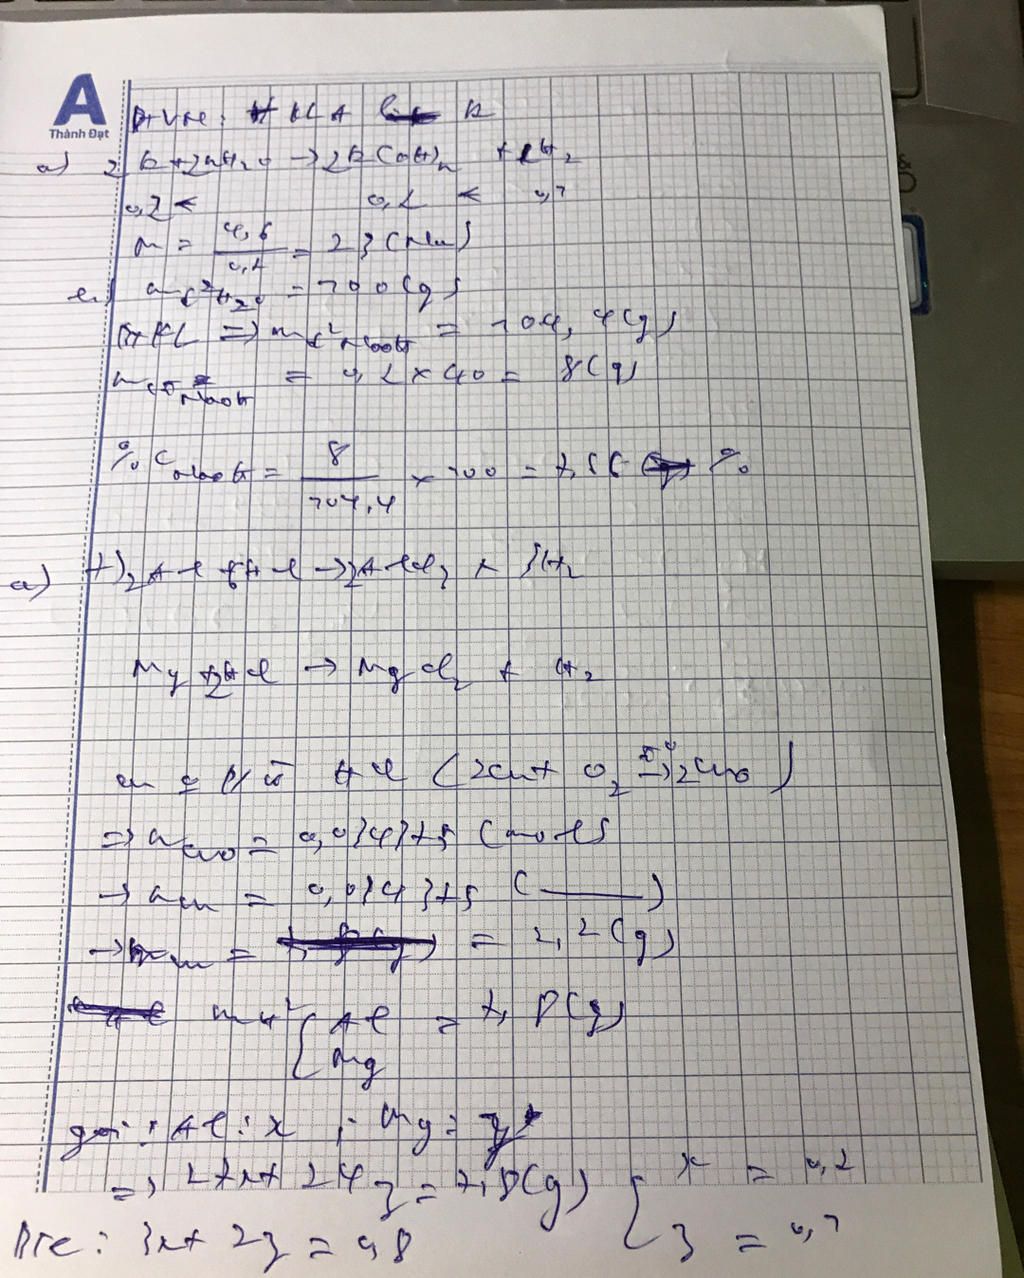 A
Thành Đạt
a) 2R + 2nH₂O → 2R(OH)ₙ + nH₂
0,2 < 0,2 < 0,1
M = 4,6 / 0,2 = 23 (Na)
= 100 (g)
ĐLBTKL => = 104,4 (g)
NaOH = 0,2 × 40 = 8 (g)
% C NaOH = 8 / 104,4 × 100 = 7,66 %
a) +) 2Al + 6HCl → 2AlCl₃ + 3H₂
Mg + 2HCl → MgCl₂ + H₂
HCl (2Cu + O₂ → 2CuO)
=> n CuO = 0,034375 (mol)
→ n Cu = 0,034375 ( )
→ m Cu = = 2,2 (g)
m Al = 7,8 (g)
Mg
gọi: Al: x ; Mg: y
=> 27x + 24y = 7,8 (g) x = 0,2
BTe: 3x + 2y = 0,8 y = 0,1